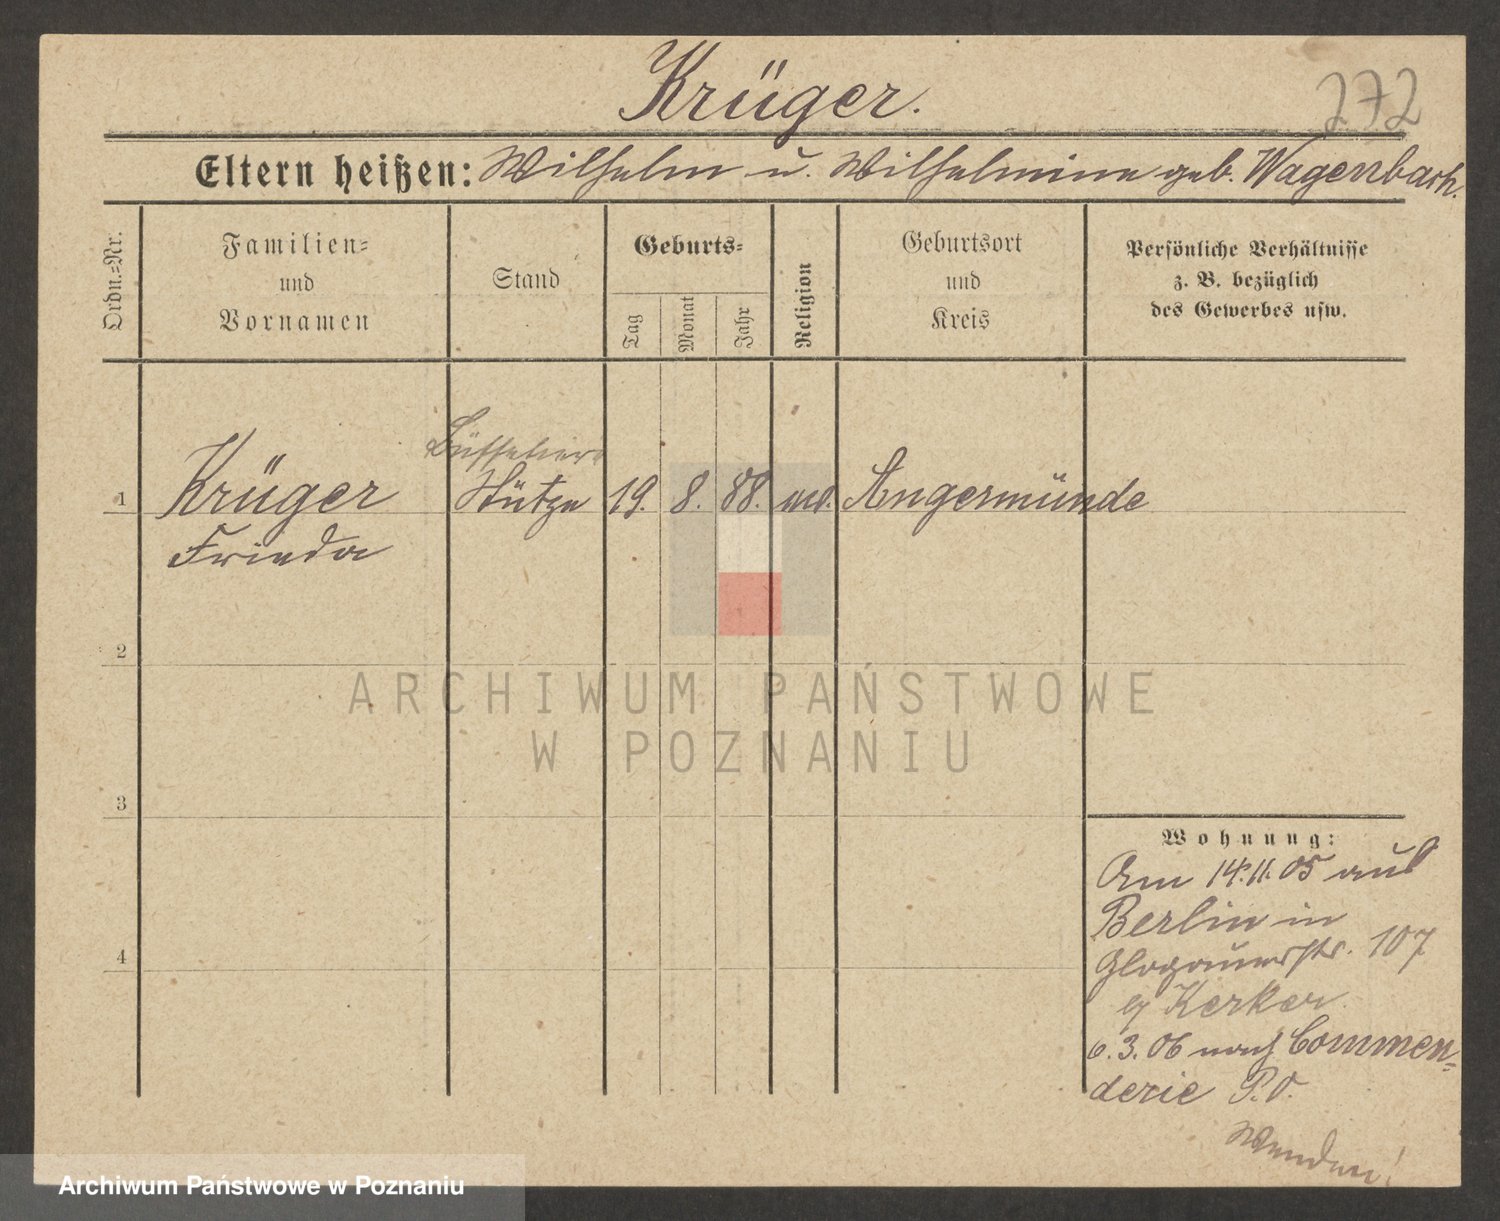 Krüger.
272
Eltern heißen: Wilhelm u. Wilhelmine geb. Wagenbach.
Ordn.=Nr.
Familien=
und
Vornamen
Stand
Geburts=
Tag
Monat
Jahr
Religion
Geburtsort
und
Kreis
Persönliche Verhältnisse
z. B. bezüglich
des Gewerbes usw.
1 Krüger Stütze 19. 8. 88. ev. Angermünde
Frieda
2
3
4
Wohnung:
Am 14.11.05 aus
Berlin in
Glogauerstr. 107
Kerker
6.3.06 nach Commen=
derie P.O.
Wenden!
ARCHIWUM PAŃSTWOWE
W POZNANIU
Archiwum Państwowe w Poznaniu